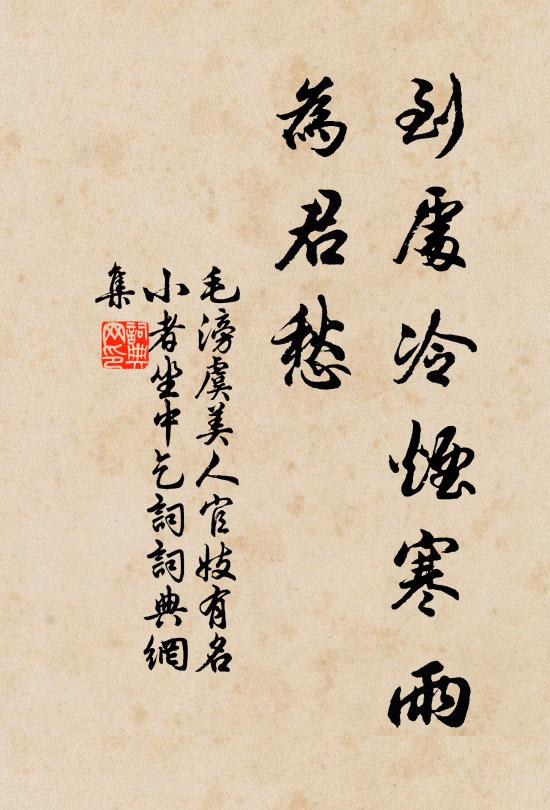 到處冷煙寒雨
為君愁
毛滂虞美人官妓有名
小者坐中乞詞詞典網
集
詞典網印